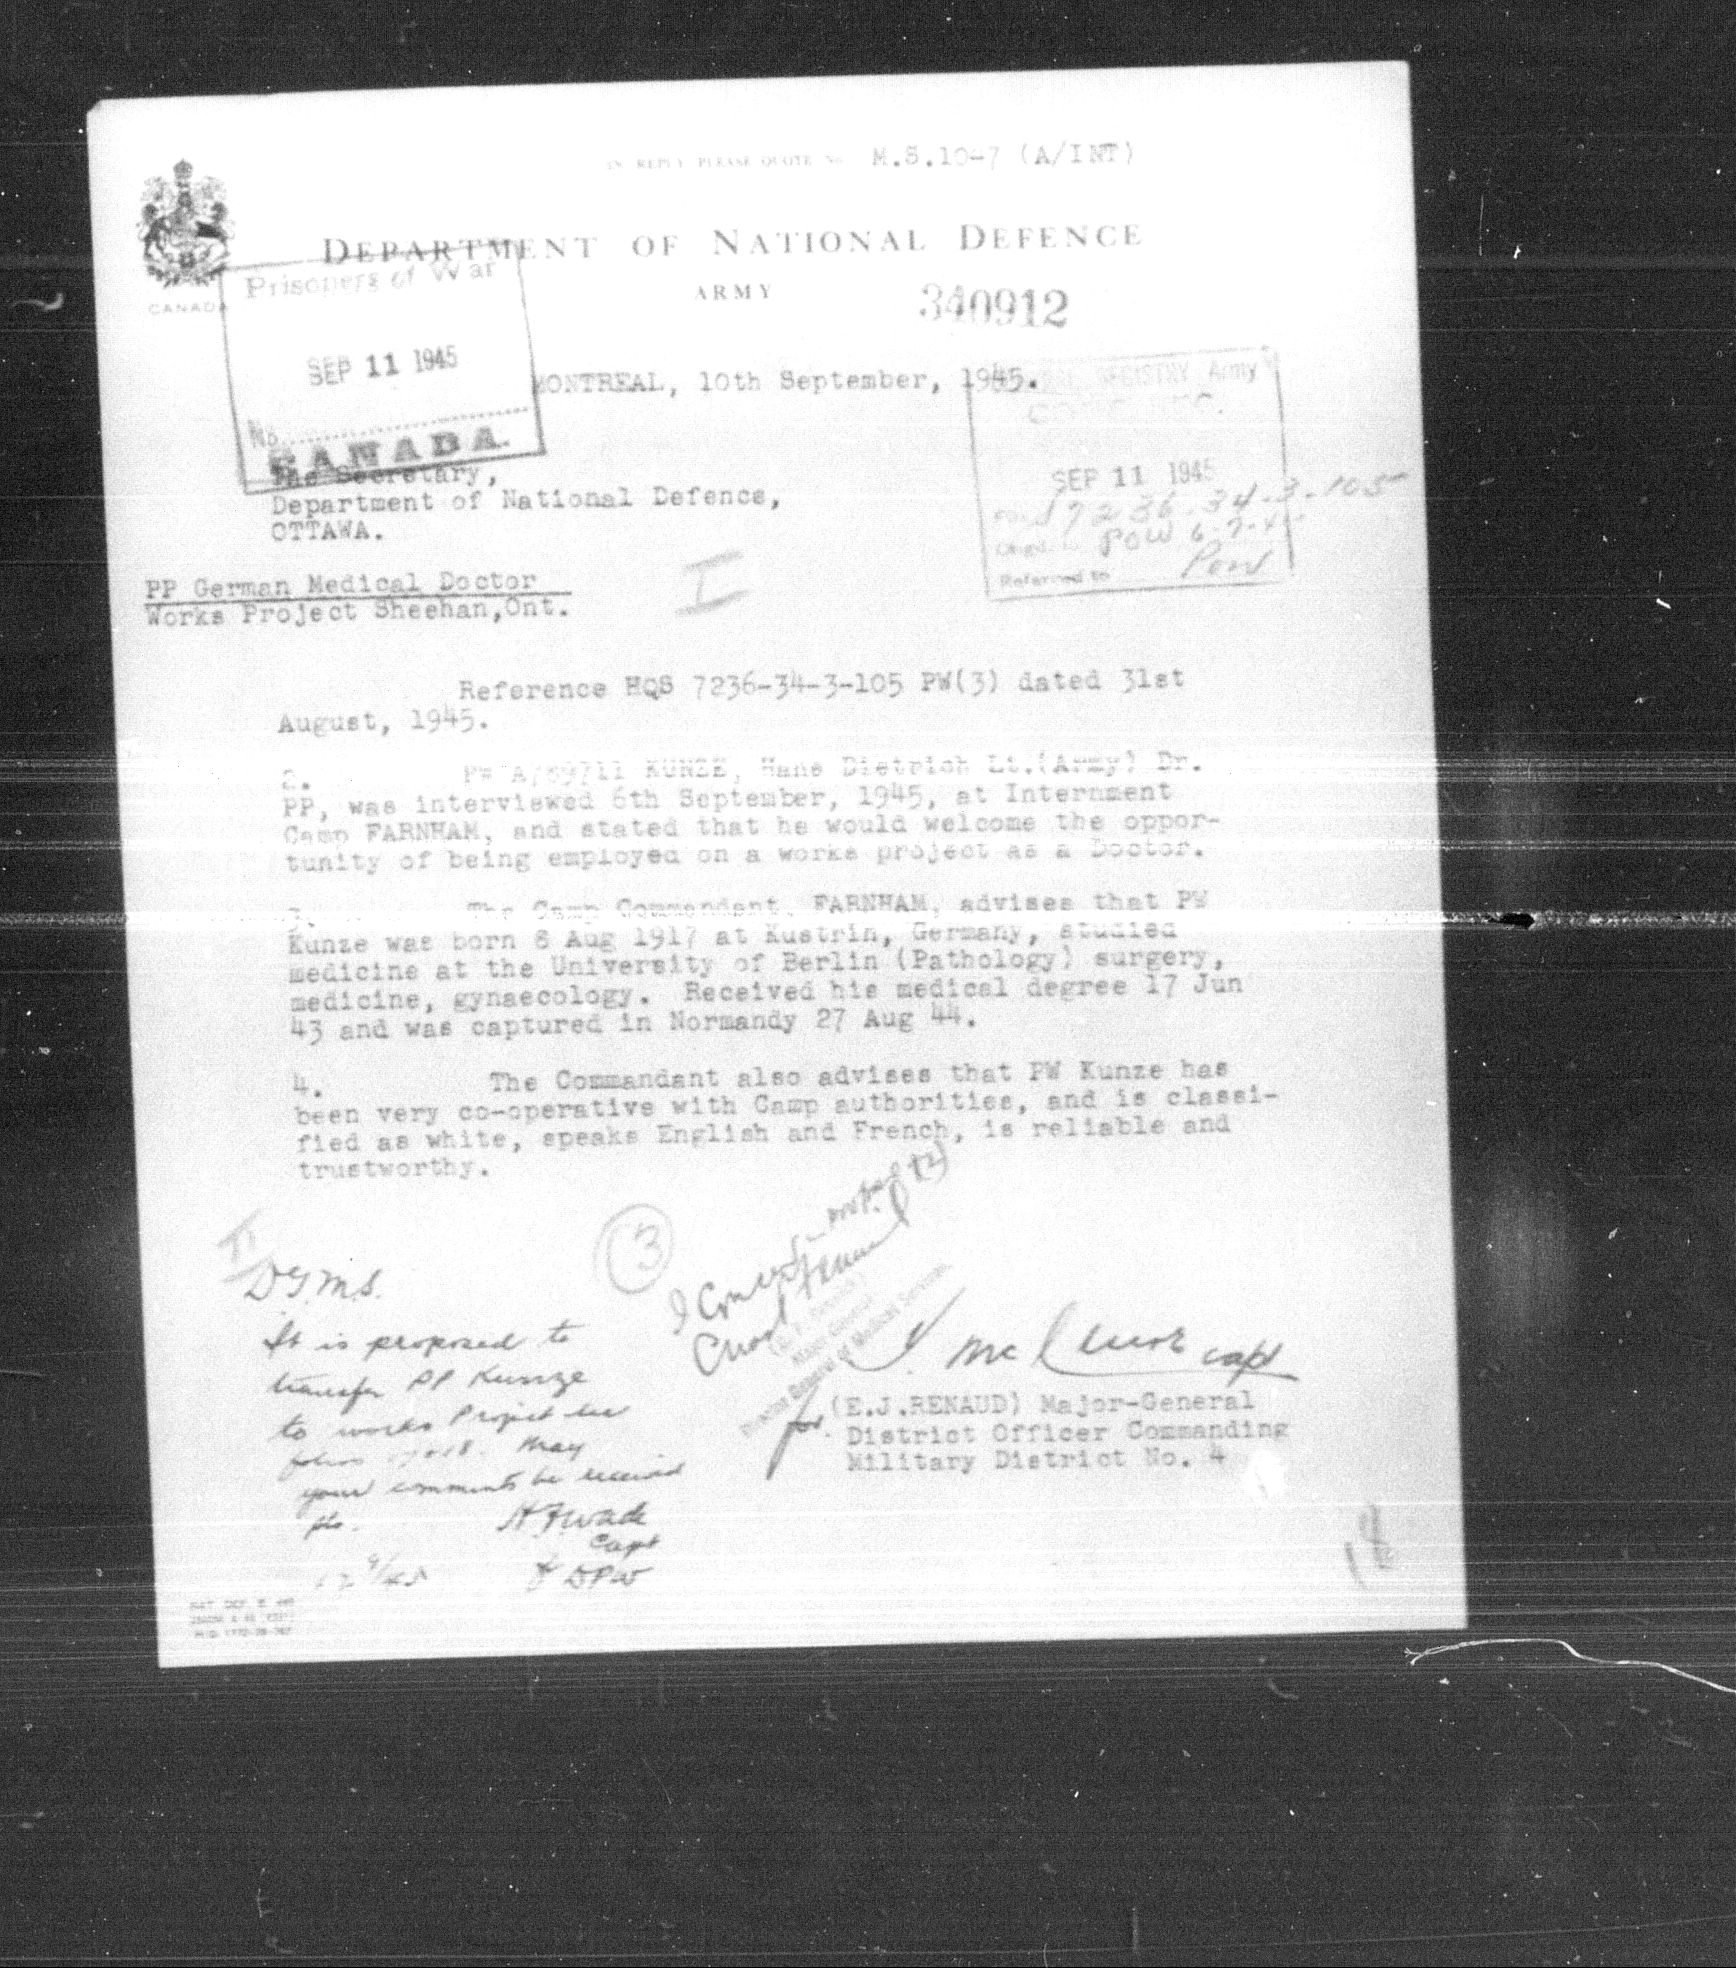 IN REPLY PLEASE QUOTE No M.S.10-7 (A/INT)
DEPARTMENT OF NATIONAL DEFENCE
ARMY
CANADA
340912
Prisoners of War
SEP 11 1945
No.
CANADA
MONTREAL, 10th September, 1945.
REGISTRY Army
SEP 11 1945
7236-34-3-105
POW
Referred to POW
The Secretary,
Department of National Defence,
OTTAWA.
PP German Medical Doctor
Works Project Sheehan,Ont.
I
Reference HQS 7236-34-3-105 PW(3) dated 31st
August, 1945.
2. PW A/89711 KUNZE, Hans Dietrich Lt.(Army) Dr.
PP, was interviewed 6th September, 1945, at Internment
Camp FARNHAM, and stated that he would welcome the oppor-
tunity of being employed on a works project as a Doctor.
3. The Camp Commandant, FARNHAM, advises that PW
Kunze was born 8 Aug 1917 at Kustrin, Germany, studied
medicine at the University of Berlin (Pathology) surgery,
medicine, gynaecology. Received his medical degree 17 Jun
43 and was captured in Normandy 27 Aug 44.
4. The Commandant also advises that PW Kunze has
been very co-operative with Camp authorities, and is classi-
fied as white, speaks English and French, is reliable and
trustworthy.
II
3
D.G.M.S.
It is proposed to
transfer PP Kunze
to works Project
May
your comments be received
pls.
H.F. Wade
Capt
f DPW
I Concur
Director General of Medical Services
Capt
for (E.J.RENAUD) Major-General
District Officer Commanding
Military District No. 4
18